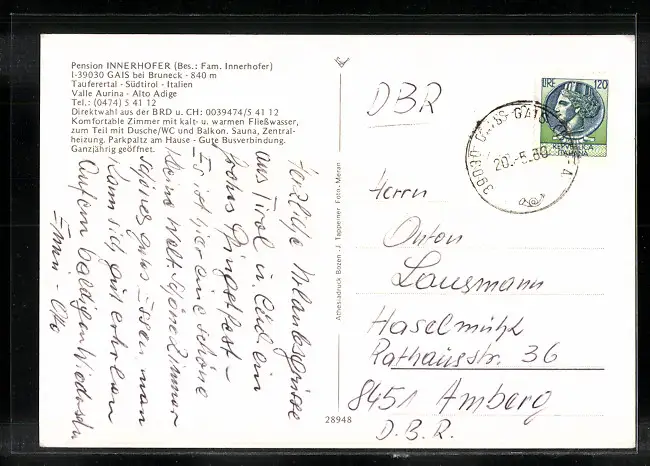 Pension INNERHOFER (Bes.: Fam. Innerhofer)
I-39030 GAIS bei Bruneck - 840 m
Taufertal - Südtirol - Italien
Valle Aurina - Alto Adige
Tel.: (0474) 5 41 12
Direktwahl aus der BRD u. CH: 0039474/5 41 12
Komfortable Zimmer mit kalt- u. warmen Fließwasser,
zum Teil mit Dusche/WC und Balkon. Sauna, Zentral-
heizung. Parkpaltz am Hause - Gute Busverbindung.
Ganzjährig geöffnet.
Herzliche Urlaubsgrüsse
aus Tirol u. Euch ein
frohes Pfingstfest -
Es ist hier eine schöne
kleine Welt. Schöne Zimmer
gutes Essen, man
kann sich gut erholen
Auf ein baldigen Wiedersehn
Otto
Athesiadruck Bozen - J. Tappeiner Foto-Meran
28948
DBR
LIRE 120
REPVBBLICA
ITALIANA
39030 GAIS-GAIS
20.-5.80
Herrn
Anton
Lausmann
Haselmühl
Rathausstr. 36
8451 Amberg
D.B.R.